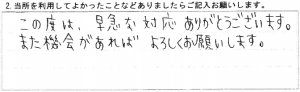 2.当所を利用してよかったことなどありましたらご記入お願いします。
この度は、早急な対応ありがとうございます。
また機会があれば よろしくお願いします。